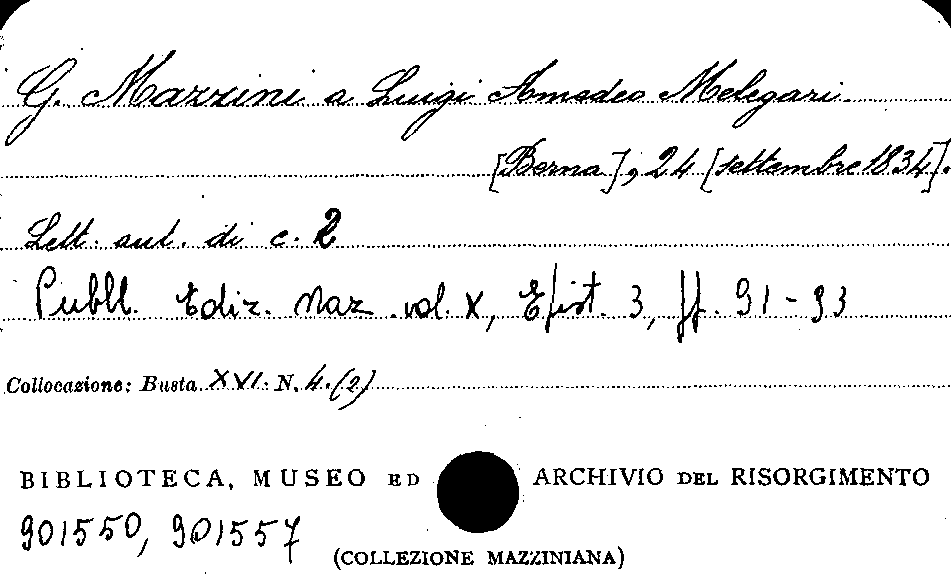 G. Mazzini a Luigi Amedeo Melegari.
[Berna], 24 [settembre 1834].
Lett. aut. di c. 2
Pubbl. Ediz. Naz. vol. X, Epist. 3, pp. 91-93
Collocazione: Busta XVI. N. 4.(2)
BIBLIOTECA, MUSEO ED ARCHIVIO DEL RISORGIMENTO
901550, 901557
(COLLEZIONE MAZZINIANA)